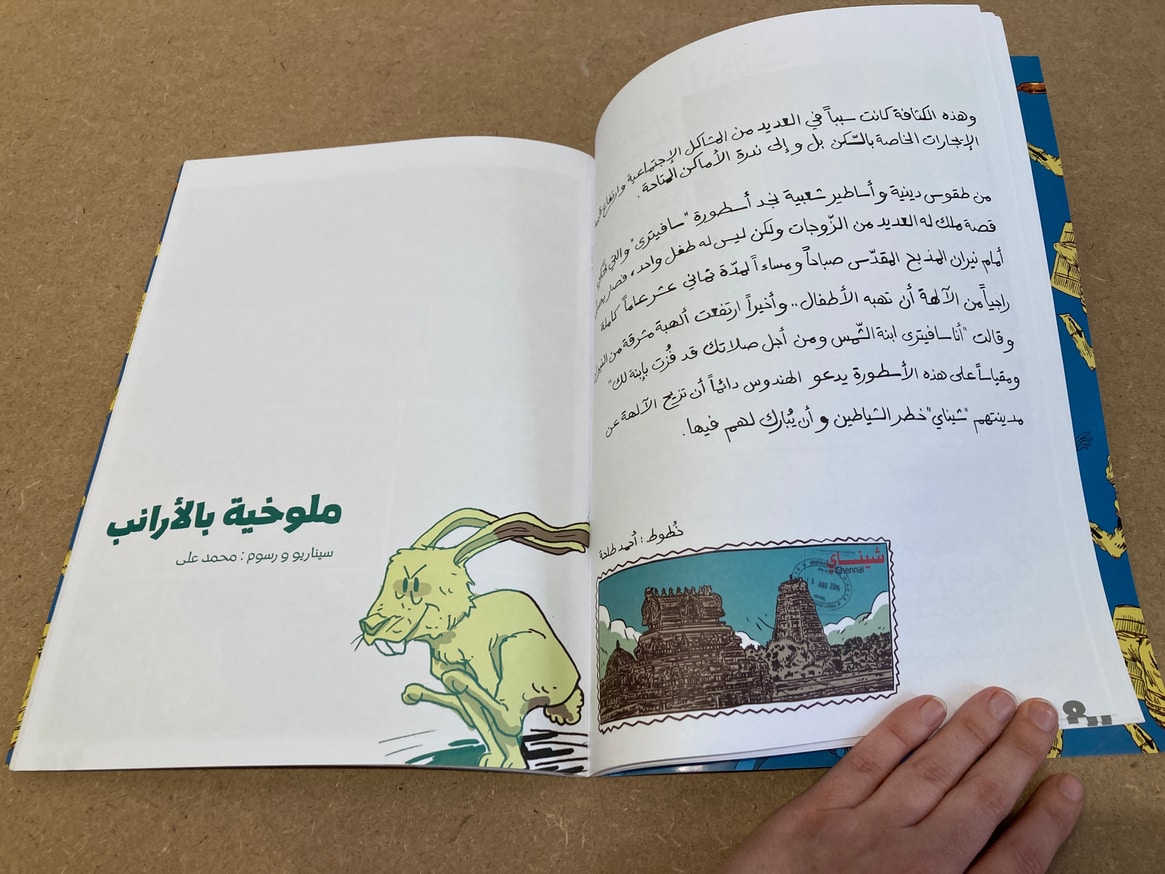 وهذه الكثافة كانت سبباً في العديد من المشاكل الإجتماعية وارتفاع
الإيجارات الخاصة بالسّكن بل و إلى ندرة الأماكن المتاحة .
من طقوس دينية و أساطير شعبية نجد أسطورة "سافيترى" والتي
قصة ملك له العديد من الزّوجات ولكن ليس له طفل واحد، فصار
أمام نيران المذبح المقدّس صباحاً و مساءاً لمدّة ثماني عشر عاماً كاملة
راجياً من الآلهة أن تهبه الأطفال.. وأخيراً ارتفعت ألهبة مشرقة من
وقالت "أنا سافيترى ابنة الشّمس ومن أجل صلاتك قد فُزت بإبنة لك"
ومقياساً على هذه الأسطورة يدعو الهندوس دائماً أن تزيح الآلهة عن
مدينتهم "شيناي" خطر الشياطين و أن يُبارك لهم فيها.
خُطوط : أحمد طلحة
شيناي
Chennai
5 AUG 2006
ملوخية بالأرانب
سيناريو و رسوم : محمد على